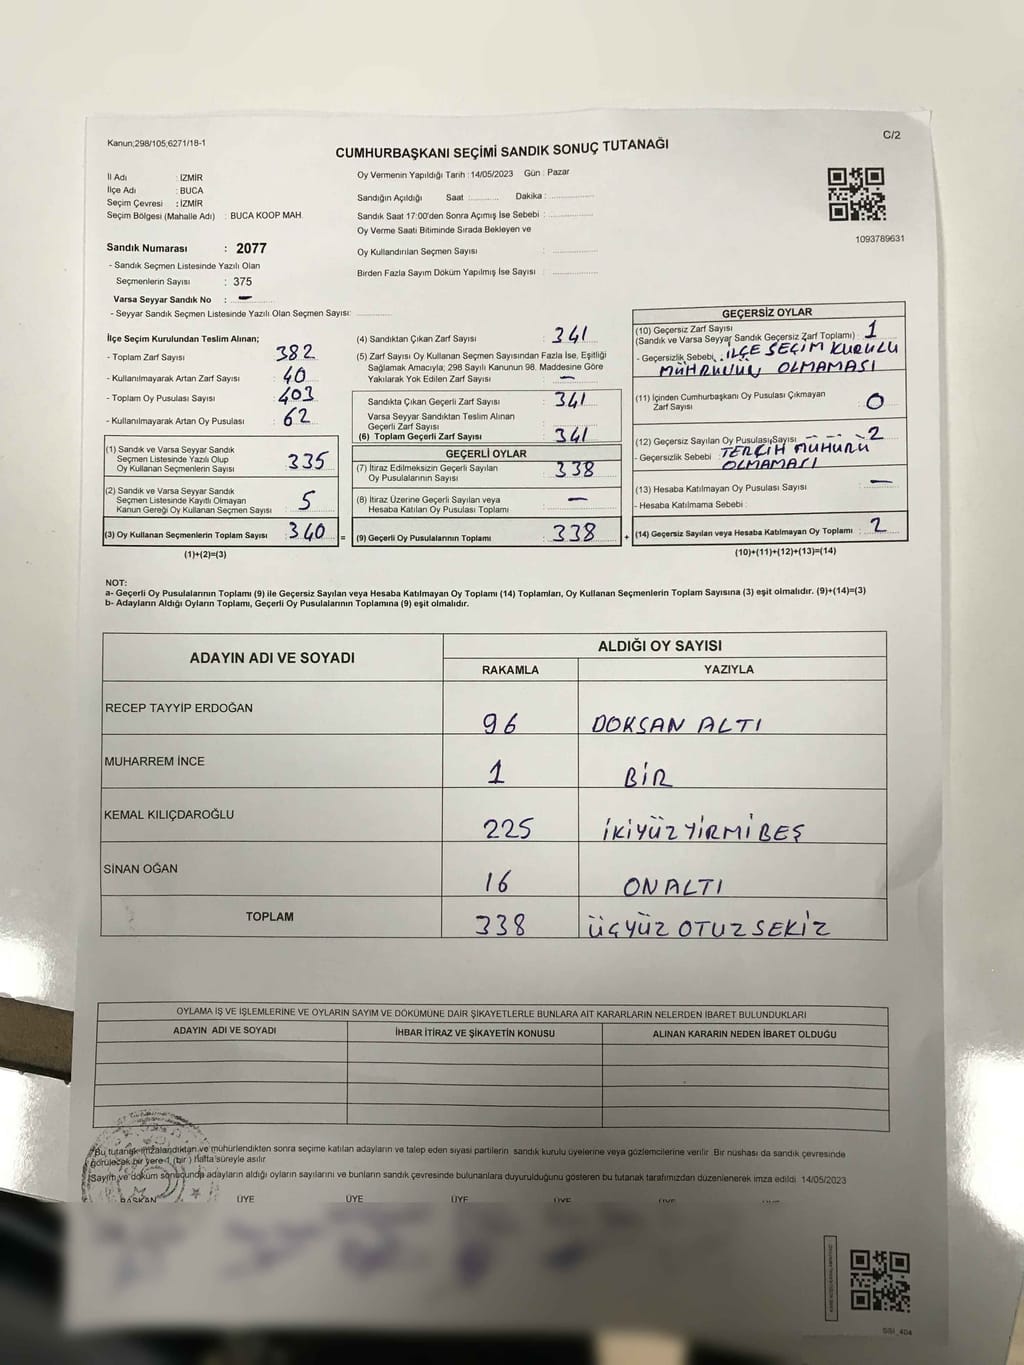 Kanun;298/105;6271/18-1
C/2
CUMHURBAŞKANI SEÇİMİ SANDIK SONUÇ TUTANAĞI
İl Adı : İZMİR
İlçe Adı : BUCA
Seçim Çevresi : İZMİR
Seçim Bölgesi (Mahalle Adı) : BUCA KOOP MAH.
Sandık Numarası : 2077
- Sandık Seçmen Listesinde Yazılı Olan
Seçmenlerin Sayısı : 375
Varsa Seyyar Sandık No : —
- Seyyar Sandık Seçmen Listesinde Yazılı Olan Seçmen Sayısı:
Oy Vermenin Yapıldığı Tarih : 14/05/2023 Gün : Pazar
Sandığın Açıldığı Saat Dakika :
Sandık Saat 17:00'den Sonra Açımış İse Sebebi :
Oy Verme Saati Bitiminde Sırada Bekleyen ve
Oy Kullandırılan Seçmen Sayısı :
Birden Fazla Sayım Döküm Yapılmış İse Sayısı :
1093789631
İlçe Seçim Kurulundan Teslim Alınan;
- Toplam Zarf Sayısı : 382
- Kullanılmayarak Artan Zarf Sayısı : 40
- Toplam Oy Pusulası Sayısı : 403
- Kullanılmayarak Artan Oy Pusulası : 62
(1) Sandık ve Varsa Seyyar Sandık
Seçmen Listesinde Yazılı Olup
Oy Kullanan Seçmenlerin Sayısı : 335
(2) Sandık ve Varsa Seyyar Sandık
Seçmen Listesinde Kayıtlı Olmayan
Kanun Gereği Oy Kullanan Seçmen Sayısı : 5
(3) Oy Kullanan Seçmenlerin Toplam Sayısı : 340 =
(1)+(2)=(3)
(4) Sandıktan Çıkan Zarf Sayısı : 341
(5) Zarf Sayısı Oy Kullanan Seçmen Sayısından Fazla İse, Eşitliği
Sağlamak Amacıyla; 298 Sayılı Kanunun 98. Maddesine Göre
Yakılarak Yok Edilen Zarf Sayısı : —
Sandıkta Çıkan Geçerli Zarf Sayısı : 341
Varsa Seyyar Sandıktan Teslim Alınan
Geçerli Zarf Sayısı :
(6) Toplam Geçerli Zarf Sayısı : 341
GEÇERLİ OYLAR
(7) İtiraz Edilmeksizin Geçerli Sayılan
Oy Pusulalarının Sayısı : 338
(8) İtiraz Üzerine Geçerli Sayılan veya
Hesaba Katılan Oy Pusulası Toplamı : —
(9) Geçerli Oy Pusulalarının Toplamı : 338 +
GEÇERSİZ OYLAR
(10) Geçersiz Zarf Sayısı
(Sandık ve Varsa Seyyar Sandık Geçersiz Zarf Toplamı) : 1
- Geçersizlik Sebebi : İLÇE SEÇİM KURULU
MÜHRÜNÜN OLMAMASI
(11) İçinden Cumhurbaşkanı Oy Pusulası Çıkmayan
Zarf Sayısı : 0
(12) Geçersiz Sayılan Oy Pusulası Sayısı : 2
- Geçersizlik Sebebi : TERCİH MÜHÜRÜ
OLMAMASI
(13) Hesaba Katılmayan Oy Pusulası Sayısı : —
- Hesaba Katılmama Sebebi :
(14) Geçersiz Sayılan veya Hesaba Katılmayan Oy Toplamı : 2
(10)+(11)+(12)+(13)=(14)
NOT:
a- Geçerli Oy Pusulalarının Toplamı (9) ile Geçersiz Sayılan veya Hesaba Katılmayan Oy Toplamı (14) Toplamları, Oy Kullanan Seçmenlerin Toplam Sayısına (3) eşit olmalıdır. (9)+(14)=(3)
b- Adayların Aldığı Oyların Toplamı, Geçerli Oy Pusulalarının Toplamına (9) eşit olmalıdır.
ADAYIN ADI VE SOYADI
ALDIĞI OY SAYISI
RAKAMLA YAZIYLA
RECEP TAYYİP ERDOĞAN 96 DOKSAN ALTI
MUHARREM İNCE 1 BİR
KEMAL KILIÇDAROĞLU 225 İKİYÜZ YİRMİ BEŞ
SİNAN OĞAN 16 ON ALTI
TOPLAM 338 ÜÇYÜZ OTUZ SEKİZ
OYLAMA İŞ VE İŞLEMLERİNE VE OYLARIN SAYIM VE DÖKÜMÜNE DAİR ŞİKAYETLERLE BUNLARA AİT KARARLARIN NELERDEN İBARET BULUNDUKLARI
ADAYIN ADI VE SOYADI İHBAR İTİRAZ VE ŞİKAYETİN KONUSU ALINAN KARARIN NEDEN İBARET OLDUĞU
Bu tutanak imzalandıktan ve mühürlendikten sonra seçime katılan adayların ve talep eden siyasi partilerin sandık kurulu üyelerine veya gözlemcilerine verilir. Bir nüshası da sandık çevresinde
görülecek bir yere 1 (bir) hafta süreyle asılır.
Sayım ve döküm sonucunda adayların aldığı oyların sayılarını ve bunların sandık çevresinde bulunanlara duyurulduğunu gösteren bu tutanak tarafımızdan düzenlenerek imza edildi. 14/05/2023
BAŞKAN ÜYE ÜYE ÜYE ÜYE ÜYE ÜYE